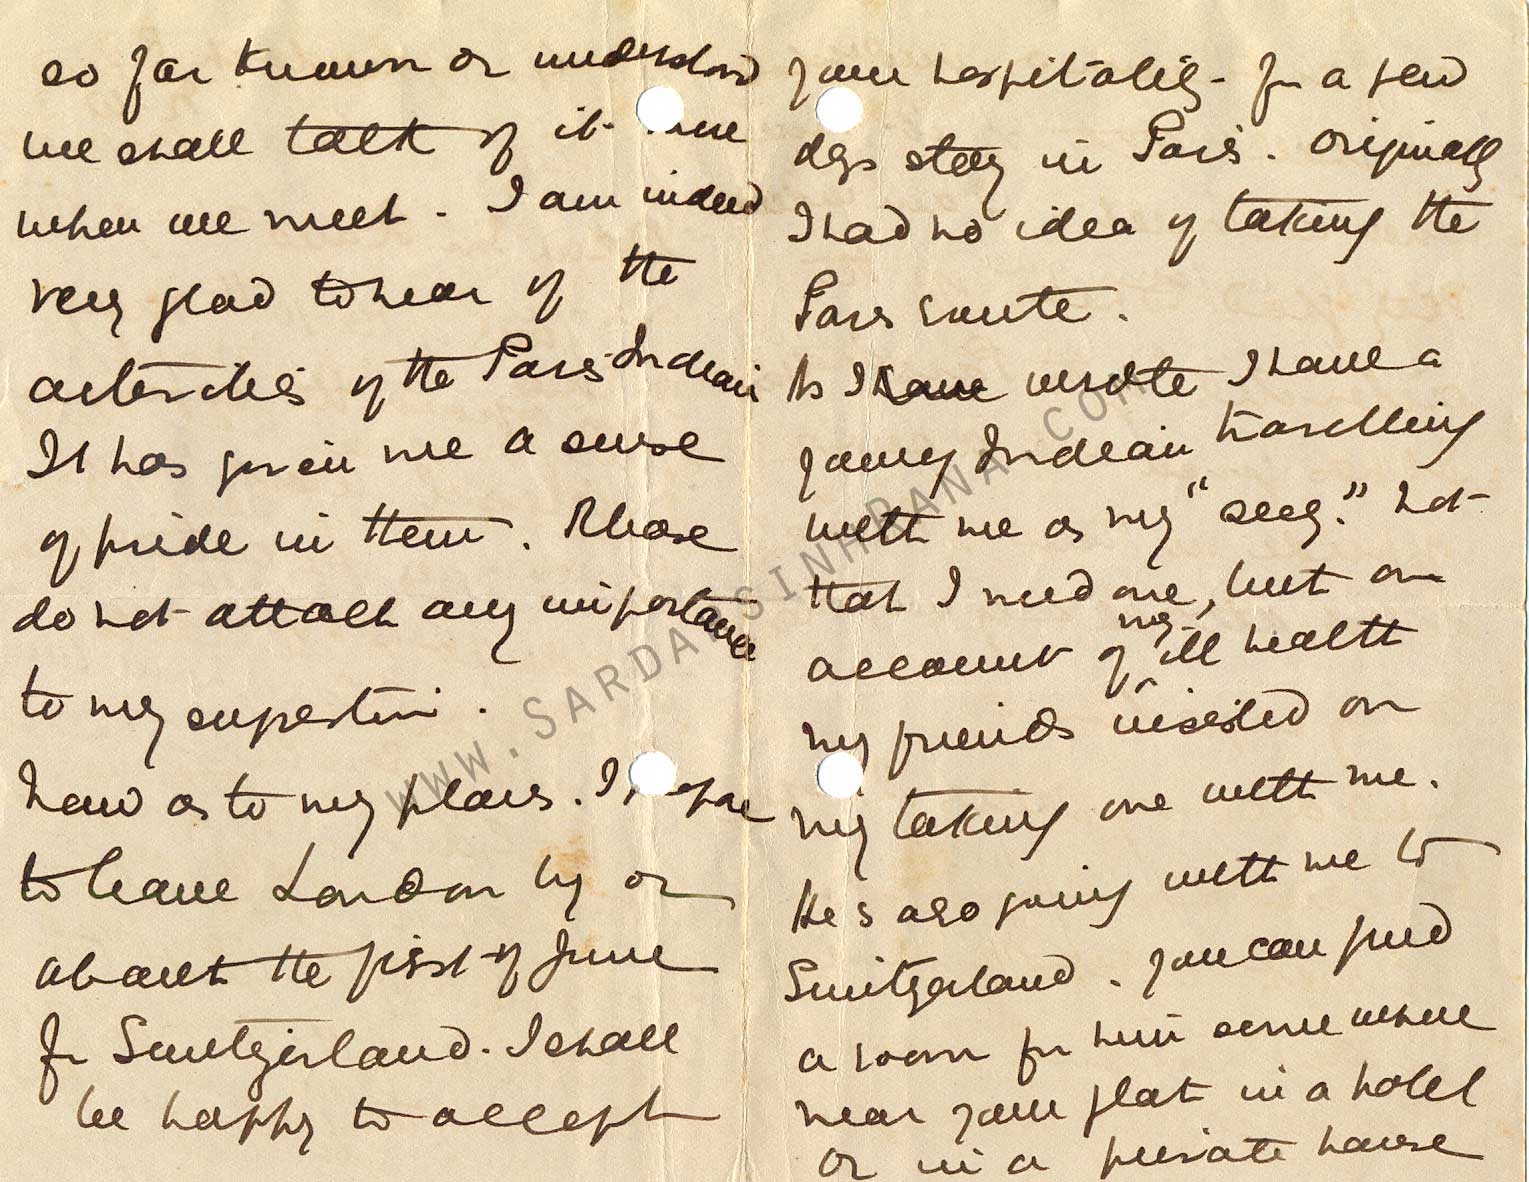 so far known or understood
we shall talk of it more
when we meet. I am indeed
very glad to hear of the
activities of the Paris Indian
It has given me a sense
of pride in them. Please
do not attach any importance
to my superstin.
Now as to my plans. I propose
to leave London by or
about the first of June
for Switzerland. I shall
be happy to accept
your hospitality for a few
days stay in Paris. Originally
I had no idea of taking the
Paris route.
As I have wrote I have a
young Indian travelling
with me as my "secy." Not
that I need one, but on
account of my ill health
my friends insisted on
my taking one with me.
He s also going with me to
Switzerland. You can find
a room for him some where
near your flat in a hotel
or in a private house
WWW.SARDARSINHRANA.COM